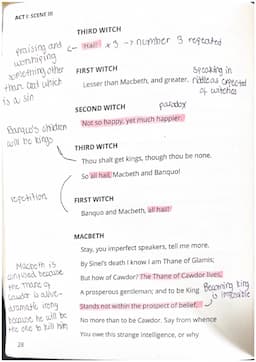 ACT I SCENE III
THIRD WITCH
Hail! x3 → number 3 repeated
praising and
worshiping
something other
than God which
is a sin
FIRST WITCH
Lesser than Macbeth, and greater.
speaking in
riddle as expected
of witches
paradox
SECOND WITCH
Not so happy, yet much happier.
Banquo's children
will be kings
THIRD WITCH
Thou shalt get kings, though thou be none.
So all hail, Macbeth and Banquo!
repetition
FIRST WITCH
Banquo and Macbeth, all hail!
MACBETH
Stay, you imperfect speakers, tell me more.
By Sinel's death I know I am Thane of Glamis;
But how of Cawdor? The Thane of Cawdor lives,
A prosperous gentleman; and to be King
Stands not within the prospect of belief,
No more than to be Cawdor. Say from whence
You owe this strange intelligence, or why
Macbeth is
confused because
the Thane of
Cawdor is alive-
dramatic irony
because he will be
the one to kill him
Becoming king
is impossible
28